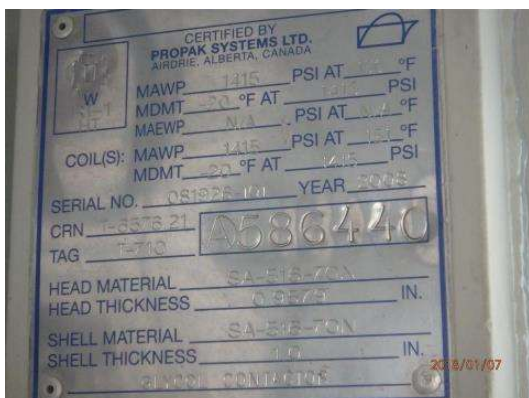 CERTIFIED BY
PROPAK SYSTEMS LTD.
AIRDRIE, ALBERTA, CANADA
W
MAWP 1415 PSI AT °F
MDMT -20 °F AT 1415 PSI
MAEWP N/A PSI AT N/A °F
COIL(S): MAWP 1415 PSI AT 151 °F
MDMT -20 °F AT 1415 PSI
SERIAL NO. YEAR 2008
CRN
TAG T-710
A586440
HEAD MATERIAL SA-516-70N
HEAD THICKNESS 0.9575 IN.
SHELL MATERIAL SA-516-70N
SHELL THICKNESS 1.0 IN.
GLYCOL CONTACTOR
2018/01/07